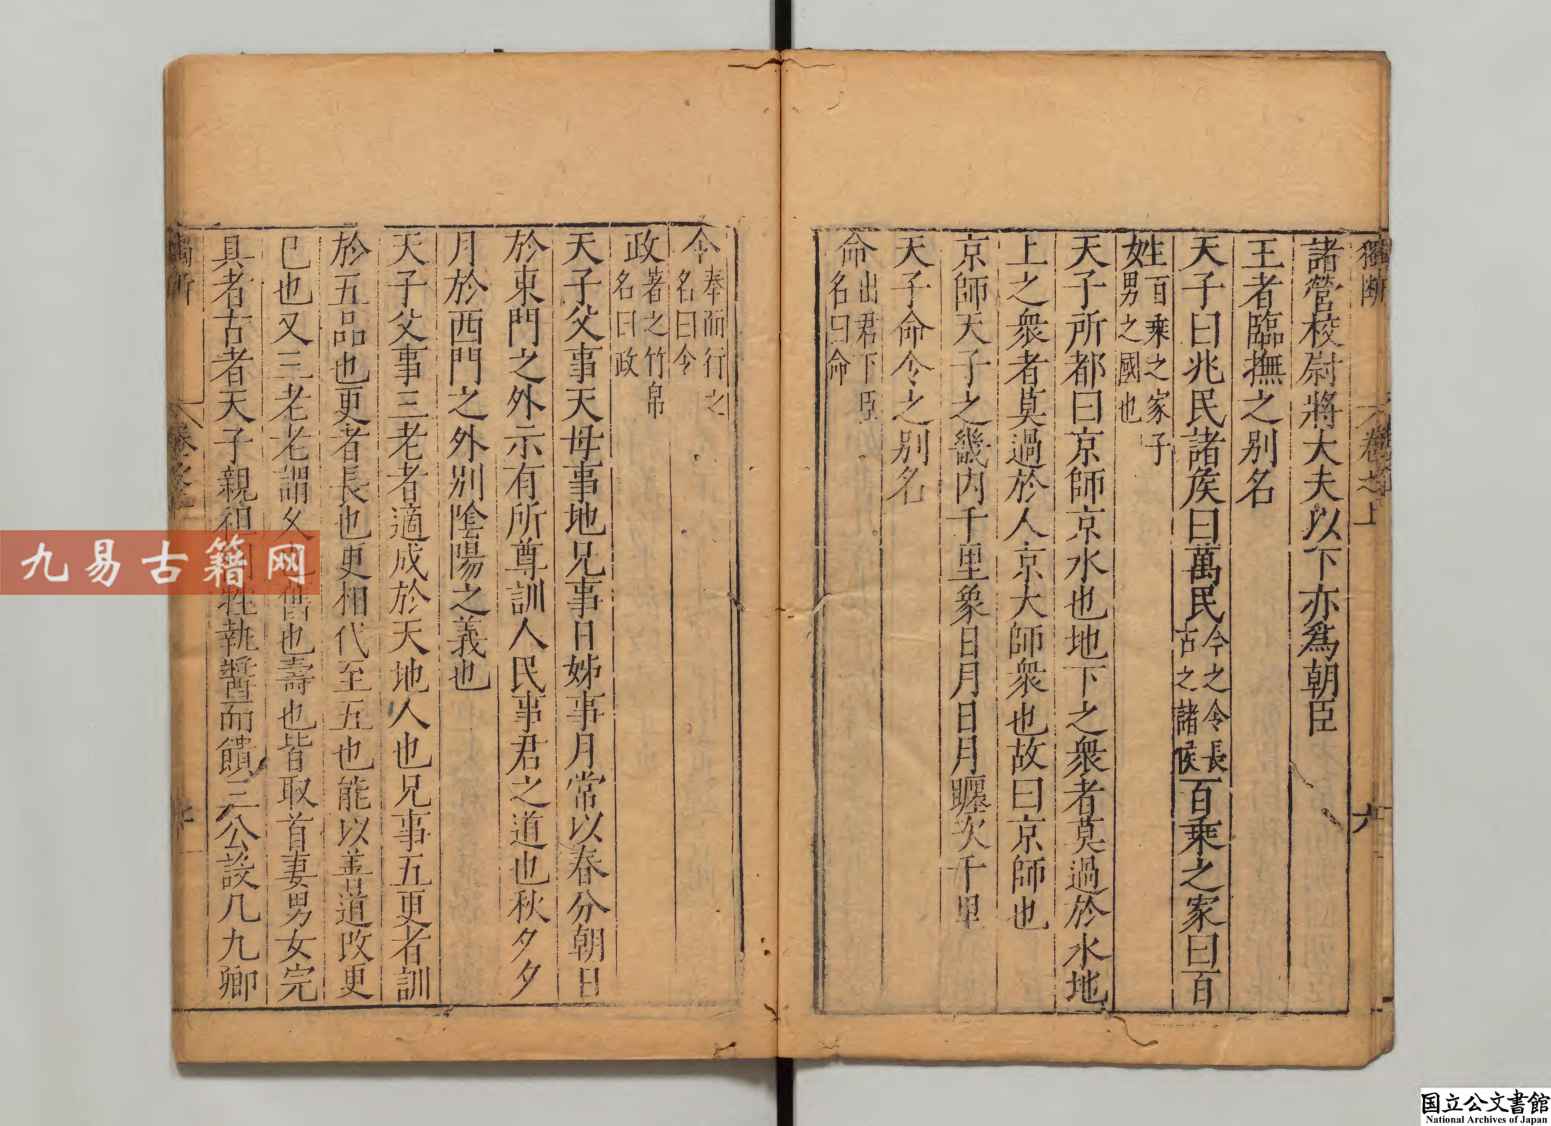 獨斷
卷之上
六
諸營校尉將大夫以下亦爲朝臣
王者臨撫之別名
天子曰兆民諸矦曰萬民今之令長古之諸侯百乘之家曰百
姓百乘之家子
女男之國也
天子所都曰京師京水也地下之衆者莫過於水地
上之衆者莫過於人京大師衆也故曰京師也
京師天子之畿内千里象日月日月躔次千里
天子命令之別名
命出君下臣名曰命
令奉而行之名曰令
政著之竹帛名曰政
天子父事天母事地兄事日姊事月常以春分朝日
於東門之外示有所尊訓人民事君之道也秋夕夕
月於西門之外別陰陽之義也
天子父事三老者適成於天地人也兄事五更者訓
於五品也更者長也更相代至五也能以善道改更
已也又三老老謂久也舊也壽也皆取首妻男女完
具者古者天子親袒割牲執醬而饋三公設几九卿
九易古籍网
国立公文書館
National Archives of Japan